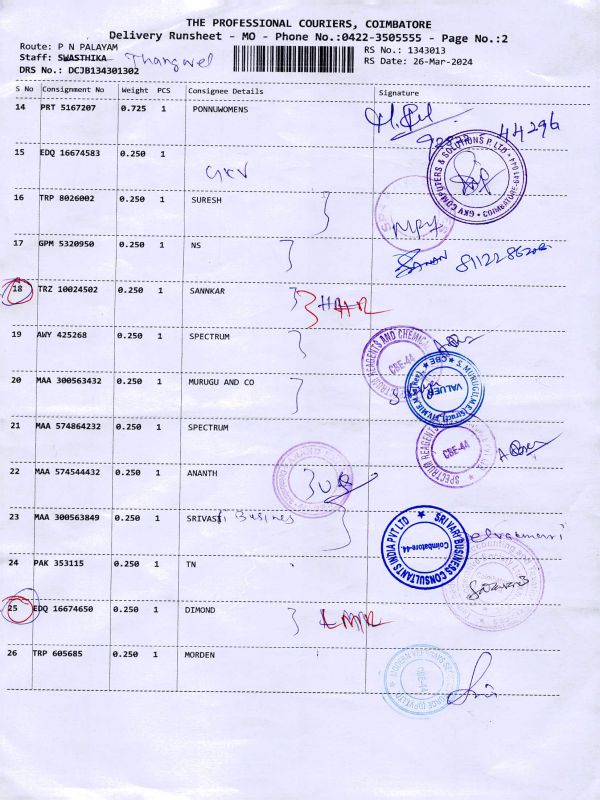 THE PROFESSIONAL COURIERS, COIMBATORE
Delivery Runsheet - MO - Phone No.:0422-3505555 - Page No.:2
Route: P N PALAYAM RS No.: 1343013
Staff: SWASTHIKA Thangavel RS Date: 26-Mar-2024
DRS No.: DCJB134301302
S No Consignment No Weight PCS Consignee Details Signature
14 PRT 5167207 0.725 1 PONNUWOMENS
44296
15 EDQ 16674583 0.250 1
GKV
GKV COMPUTERS & SOLUTIONS P LTD COIMBATORE-641 044
16 TRP 8026002 0.250 1 SURESH
17 GPM 5320950 0.250 1 NS
18 TRZ 10024502 0.250 1 SANNKAR
19 AWY 425268 0.250 1 SPECTRUM
SPECTRUM REAGENTS AND CHEMICAL CBE-44
20 MAA 300563432 0.250 1 MURUGU AND CO
VALUER CBE
21 MAA 574864232 0.250 1 SPECTRUM
SPECTRUM REAGENTS CBE-44
22 MAA 574544432 0.250 1 ANANTH
23 MAA 300563849 0.250 1 SRIVASTI Busines
SRI VARI BUSINESS CONSULTANTS INDIA PVT LTD Coimbatore-44.
24 PAK 353115 0.250 1 TN
25 EDQ 16674650 0.250 1 DIMOND
26 TRP 605685 0.250 1 MORDEN
CBE-44